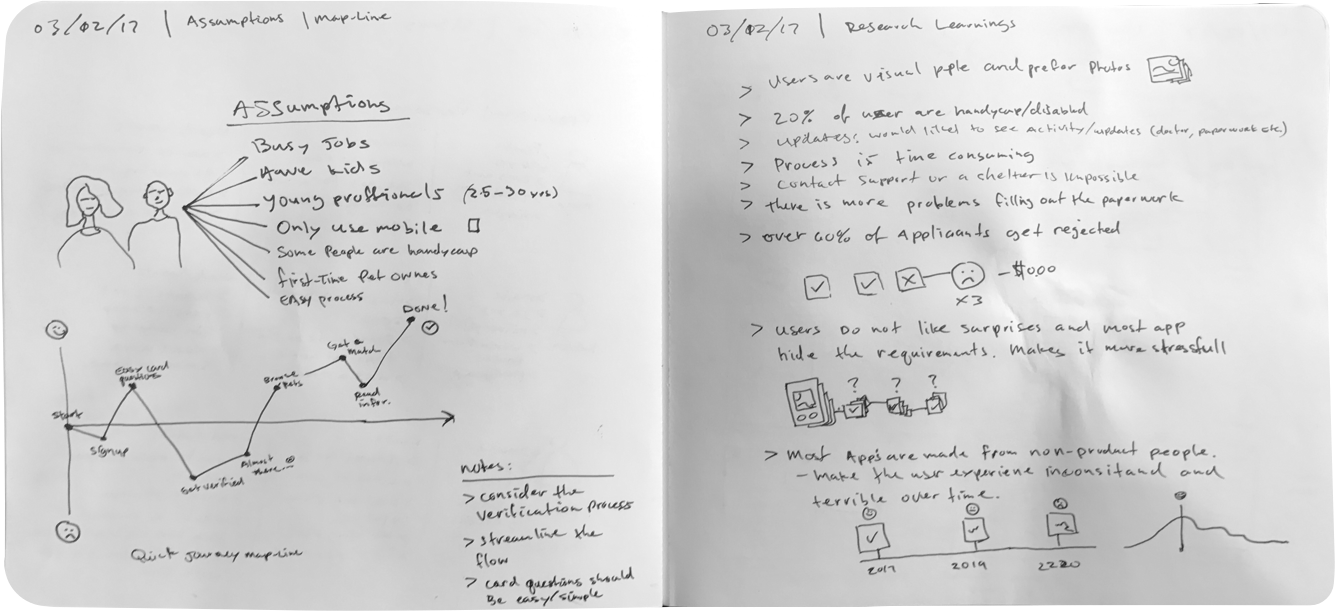 03/02/17 | Assumptions | map-line
Assumptions
Busy Jobs
Have kids
Young proffionals (25-30 yrs)
Only use mobile
Some People are handycap
first-Time Pet ownes
EASy process
Done!
Get a match
Easy card questions
Browse Pets
Read infor.
Start
Signup
Almost there...
Get verified
Quick Journey map-line
notes:
> consider the
verification process
> streamline the
flow
> card questions should
Be easy/simple
03/02/17 | Research Learnings
> Users are visual pple and prefer Photos
> 20% of user are handycap/disabled
> updates: would liked to see activity/updates (doctor, paperwork etc)
> Process is time consuming
> Contact support or a shelter is impossible
> there is more problems filling out the paperwork
> over 60% of Applicants get rejected
- $0.00
x3
> users Do not like surprises and most app
hide the requirements. Makes it more stressfull
? ? ?
> Most Apps are made from non-product people.
- Make the user experiene inconsitand and
terrible over time.
2017 2019 2220